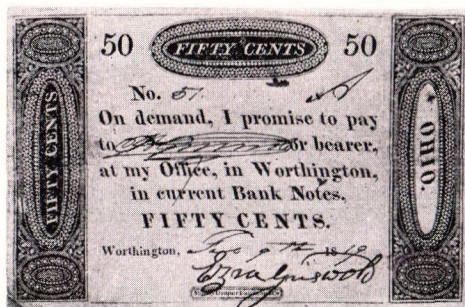 50 FIFTY CENTS 50
FIFTY CENTS
OHIO.
No. 51. A
On demand, I promise to pay
to or bearer,
at my Office, in Worthington,
in current Bank Notes,
FIFTY CENTS.
Worthington, 9th 1819
Ezra Griswold